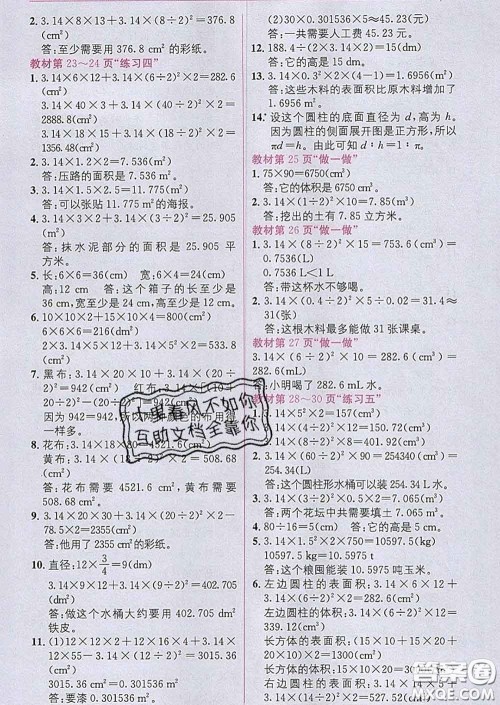 2. 3.14×8×13+3.14×(8÷2)²×2=376.8
(cm²)
答:至少需要用 376.8 cm²的彩纸。
教材第 23～24 页“练习四”
1. 3.14×6×12+3.14×(6÷2)²×2=282.6
(cm²)
3.14×40×3+3.14×(40÷2)²×2=
2888.8(cm²)
3.14×18×15+3.14×(18÷2)²×2=
1356.48(cm²)
2. 3.14×1.2×2=7.536(m²)
答:压路的面积是 7.536 m²。
3. 3.14×1.5×2.5=11.775(m²)
答:可以张贴 11.775 m²的海报。
4. 3.14×3×2+3.14×(3÷2)²=25.905(m²)
答:抹水泥部分的面积是 25.905 平
方米。
5. 长:6×6=36(cm) 宽:6×4=24(cm)
高:12 cm 答:这个箱子的长至少是
36 cm,宽至少是 24 cm,高至少是 12 cm。
6. 10×10×2+10×15×4=800(cm²)
6×6×6=216(dm²)
2×3.14×5²+2×3.14×5×12=533.8
(cm²)
7. 黑布:
942(cm²)
因为 942=942,所以
一样多。
8. 花布:
黄布:
答:花布需要 4521.6 cm²,黄布需要
508.68 cm²。
9. 3.14×20×30+3.14×(20÷2)²×2-
78.5×2=2355(cm²)
答:他用了 2355 cm²的彩纸。
10. 直径:12×3/4=9(dm)
3.14×9×12+3.14×(9÷2)²=402.705
(dm²)
答:做这个水桶大约要用 402.705 dm²
铁皮。
11. (1)12×12×2+12×16×4+3.14×
55-3.14×(12÷2)²=3015.36(cm²)
3015.36 cm²=0.301536 m²
答:要漆 0.301536 m²。
(2)30×0.301536×5≈45.23(元)
答:一共需要人工费 45.23 元。
12. 188.4÷(2×3.14×2)=15(dm)
答:它的高是 15 dm。
13. 3.14×0.3²×2×(4-1)=1.6956(m²)
答:这些木料的表面积比原木料增加了
1.6956 m²。
14. 设这个圆柱的底面直径为 d,高为 h。
因为圆柱的侧面展开图是正方形,所以
πd=h。由此可知 d∶h=1∶π。
教材第 25 页“做一做”
1. 75×90=6750(cm³)
答:它的体积是 6750 cm³。
2. 3.14×(1÷2)²×10=7.85(m³)
答:挖出的土有 7.85 立方米。
教材第 26 页“做一做”
1. 3.14×(8÷2)²×15=753.6(cm³)=
0.7536(L)
0.7536L＜1 L
答:带这杯水不够喝。
2. 3.14×(0.4÷2)²×5÷0.02=31.4≈
31(张)
答:这根木料最多能做 31 张课桌。
教材第 27 页“做一做”
3.14×(6÷2)²×10=282.6(cm³)=
282.6(mL)
答:小明喝了 282.6 mL 水。
教材第 28～30 页“练习五”
1. 3.14×5²×2=157(cm³)
3.14×(4÷2)²×12=150.72(cm³)
3.14×(8÷2)²×8=401.92(cm³)
2. 3.14×(60÷2)²×90=254340(cm³)=
254.34(L)
答:这个圆柱形水桶可以装 254.34 L 水。
3. 3.14×(3÷2)²×0.5×2=7.065(m³)
答:两个花坛中共需要填土 7.065 m³。
4. 80÷16=5(cm) 答:它的高是 5 cm。
10597.5 kg=10.5975 t
答:这个粮囤能装 10.5975 吨玉米。
6. 左边圆柱的表面积:3.14×6×12+
3.14×(6÷2)²×2=282.6(cm²)
左边圆柱的体积:3.14×(6÷2)²×12=
339.12(cm³)
长方体的表面积:(15×10+15×20+
20×10)×2=1300(cm²)
长方体的体积:15×10×20=3000(cm³)
右边圆柱的表面积:3.14×14×5+
3.14×(14÷2)²×2=527.52(cm²)
十里春风不如你
互助文档全靠你
答案圈
MXQE.COM